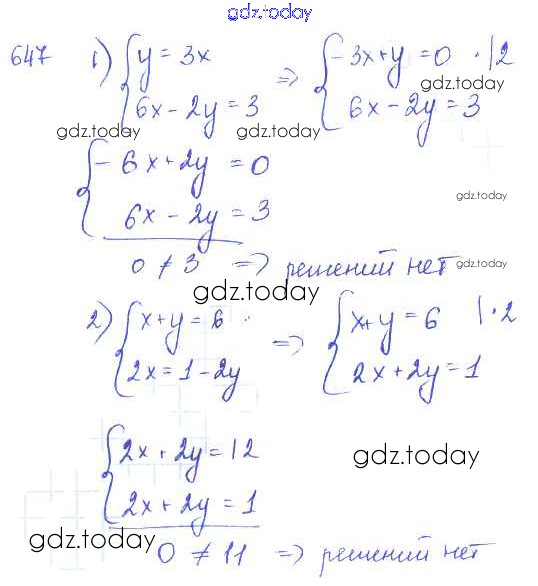 gdz.today
647 1) { y = 3x => { -3x+y = 0 ·|2
6x - 2y = 3 6x - 2y = 3
gdz.today gdz.today gdz.today
{ -6x+2y = 0
6x - 2y = 3
gdz.today
0 ≠ 3 => решений нет
gdz.today gdz.today
2) { x+y = 6 => { x+y = 6 |·2
2x = 1-2y 2x+2y = 1
{ 2x + 2y = 12
2x + 2y = 1
gdz.today
gdz.today
0 ≠ 11 => решений нет